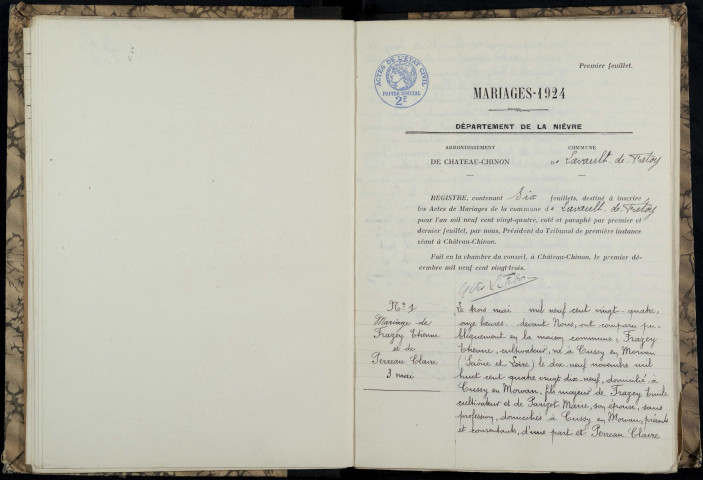 Premier feuillet.
ACTES DE L'ÉTAT CIVIL
PAPIER SPÉCIAL
2E
MARIAGES-1924
DÉPARTEMENT DE LA NIÈVRE
ARRONDISSEMENT
DE CHATEAU-CHINON
COMMUNE
DE Lavault-de-Frétoy
REGISTRE, contenant Six feuillets, destiné à inscrire
les Actes de Mariages de la commune de Lavault-de-Frétoy
pour l'an mil neuf cent vingt-quatre, coté et paraphé par premier et
dernier feuillet, par nous, Président du Tribunal de première instance
séant à Château-Chinon.
Fait en la chambre du conseil, à Château-Chinon, le premier dé-
cembre mil neuf cent vingt-trois.
No 1
Mariage de
Frazey Etienne
et de
Perreau Claire
3 mai
Le trois mai mil neuf cent vingt-quatre,
onze heures, devant Nous, ont comparu pu-
bliquement en la maison commune, Frazey
Etienne, cultivateur, né à Cussy en Morvan
(Saône et Loire) le dix neuf novembre mil
huit cent quatre vingt dix neuf, domicilié à
Cussy en Morvan, fils majeur de Frazey Emile
cultivateur et de Parizot Marie, son épouse, sans
profession, domiciliés à Cussy en Morvan, présents
et consentants, d'une part et Perreau Claire